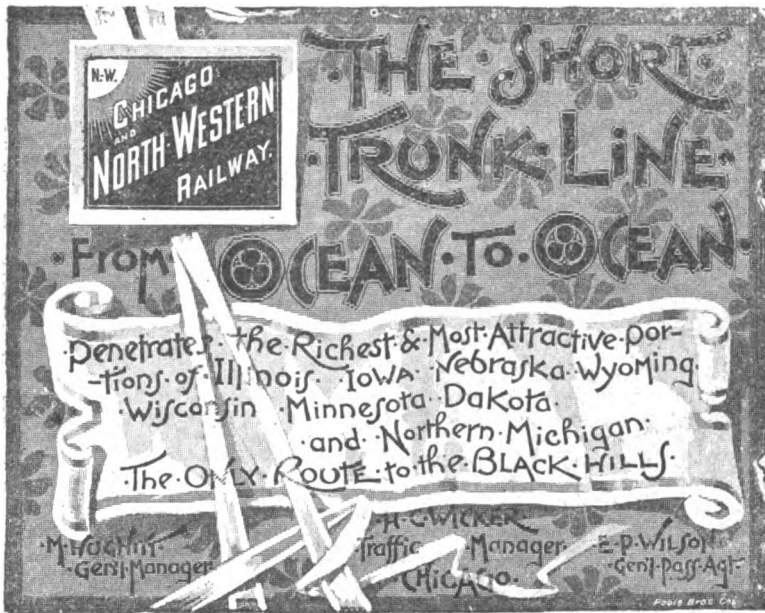 N.-W.
CHICAGO
AND
NORTH-WESTERN
RAILWAY.
·THE·SHORT·
·TRUNK·LINE·
·From·OCEAN·To·OCEAN·
·Penetrates·the·Richest·&·Most·Attractive·por-
-tions·of·Illinois··Iowa··Nebraska·Wyoming·
·Wisconsin··Minnesota·Dakota·
·and··Northern·Michigan·
·The·ONLY·ROUTE·to·the·BLACK·HILLS·
·M·HUGHITT·
·Gen'l·Manager·
·H·C·WICKER·
·Traffic··Manager·
·CHICAGO·
·E·P·WILSON·
·Gen'l·Pass·Agt·
Poole Bros Chi.